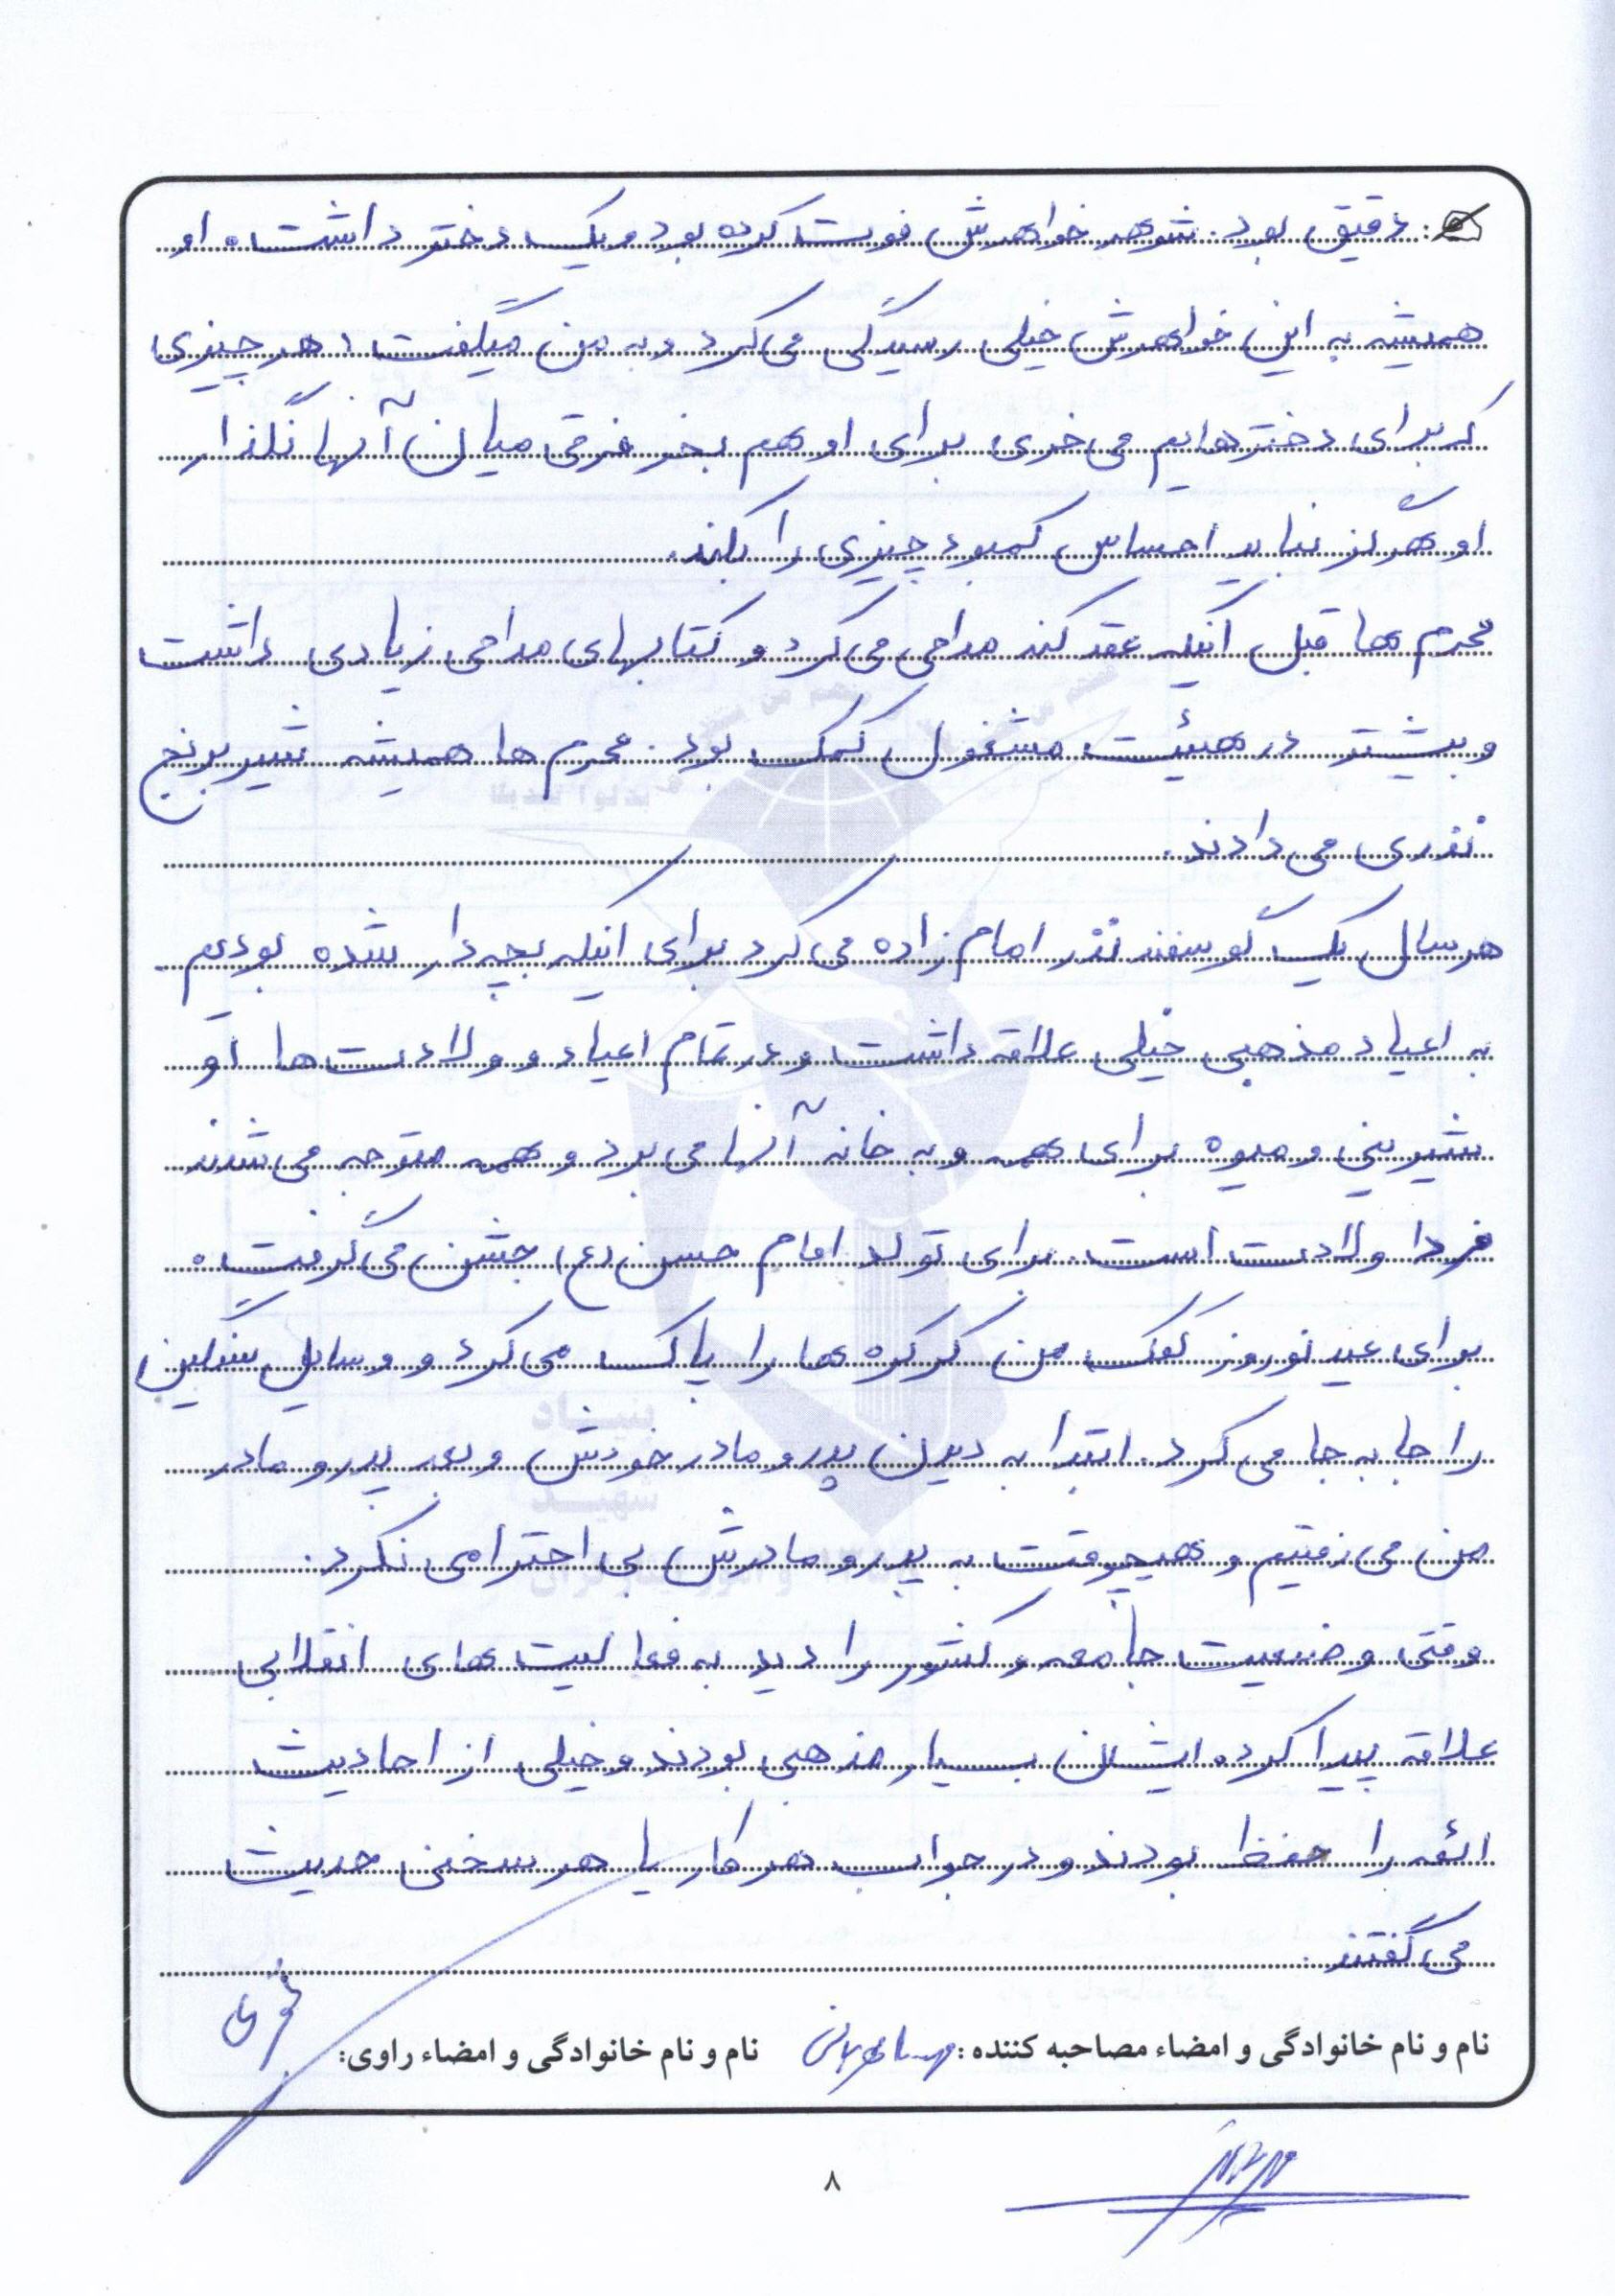 دقیق بود. شوهر خواهرش فوت کرده بود و یک دختر داشت. او
همیشه به این خواهرش خیلی رسیدگی می‌کرد و به من میگفت: هر چیزی
که برای دخترهایم می‌خری برای او هم بخر فرقی میان آنها نگذار
او هرگز نباید احساس کمبود چیزی را بکند.
محرم ها قبل آنکه عقد کند مداحی می‌کرد و کتابهای مداحی زیادی داشت
و بیشتر در هیئت مشغول کمک بود. محرم ها همیشه شیر برنج
نذری می‌دادند.
هر سال یک گوسفند نذر امام زاده می‌کرد برای اینکه بچه‌دار شده بودیم.
به اعیاد مذهبی خیلی علاقه داشت و در تمام اعیاد و ولادت‌ها او
شیرینی و میوه برای همه و به خانه آنها می‌برد و همه متوجه می‌شدند
فردا ولادت است. برای تولد امام حسن (ع) جشن می‌گرفت.
برای عید نوروز کمک من کرکره ها را پاک می‌کرد و وسایل سنگین
را جا به جا می‌کرد. ابتدا به دیدن پدر و مادر خودش و بعد پدر و مادر
من می‌رفتیم و هیچوقت به پدر و مادرش بی احترامی نکرد.
وقتی وضعیت جامعه و کشور را دید به فعالیت های انقلابی
علاقه پیدا کرد. ایشان بسیار مذهبی بودند و خیلی از احادیث
ائمه را حفظ بودند و در جواب هر کار یا هر سخنی حدیث
می‌گفتند.
نام و نام خانوادگی و امضاء مصاحبه کننده: نام و نام خانوادگی و امضاء راوی:
۸